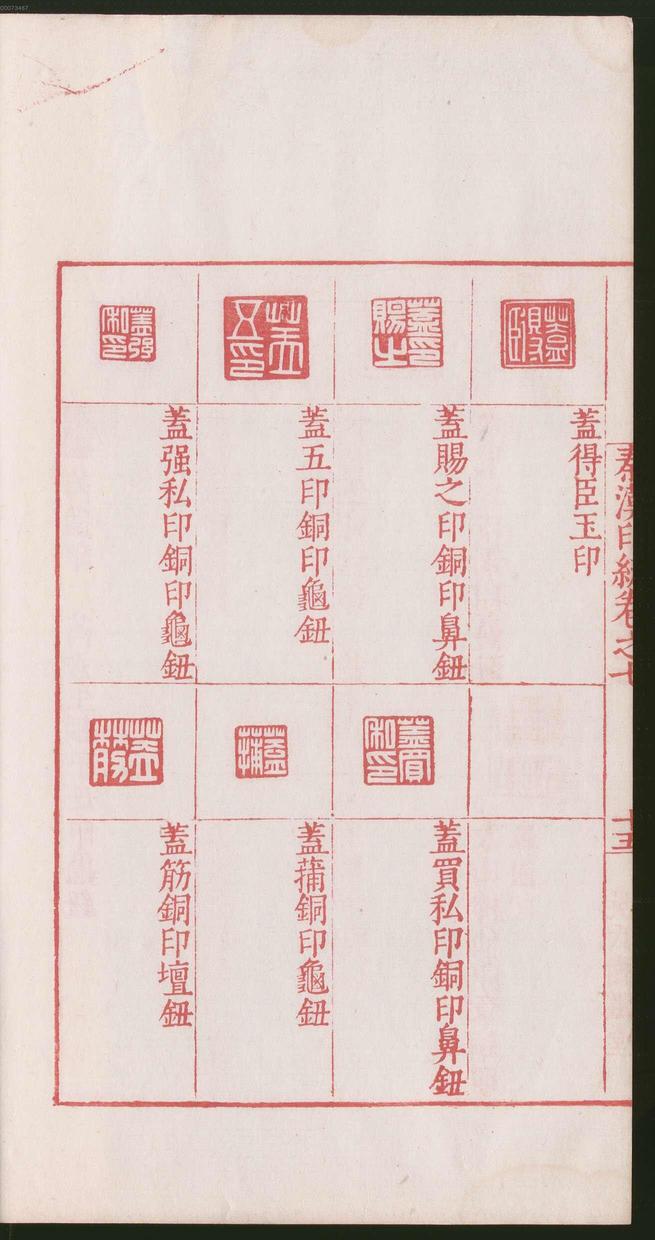 00073467
秦漢印統卷之七
十五
蓋得臣玉印
蓋賜之印銅印鼻鈕
蓋五印銅印龜鈕
蓋强私印銅印龜鈕
蓋買私印銅印鼻鈕
蓋蒱銅印龜鈕
蓋筋銅印壇鈕